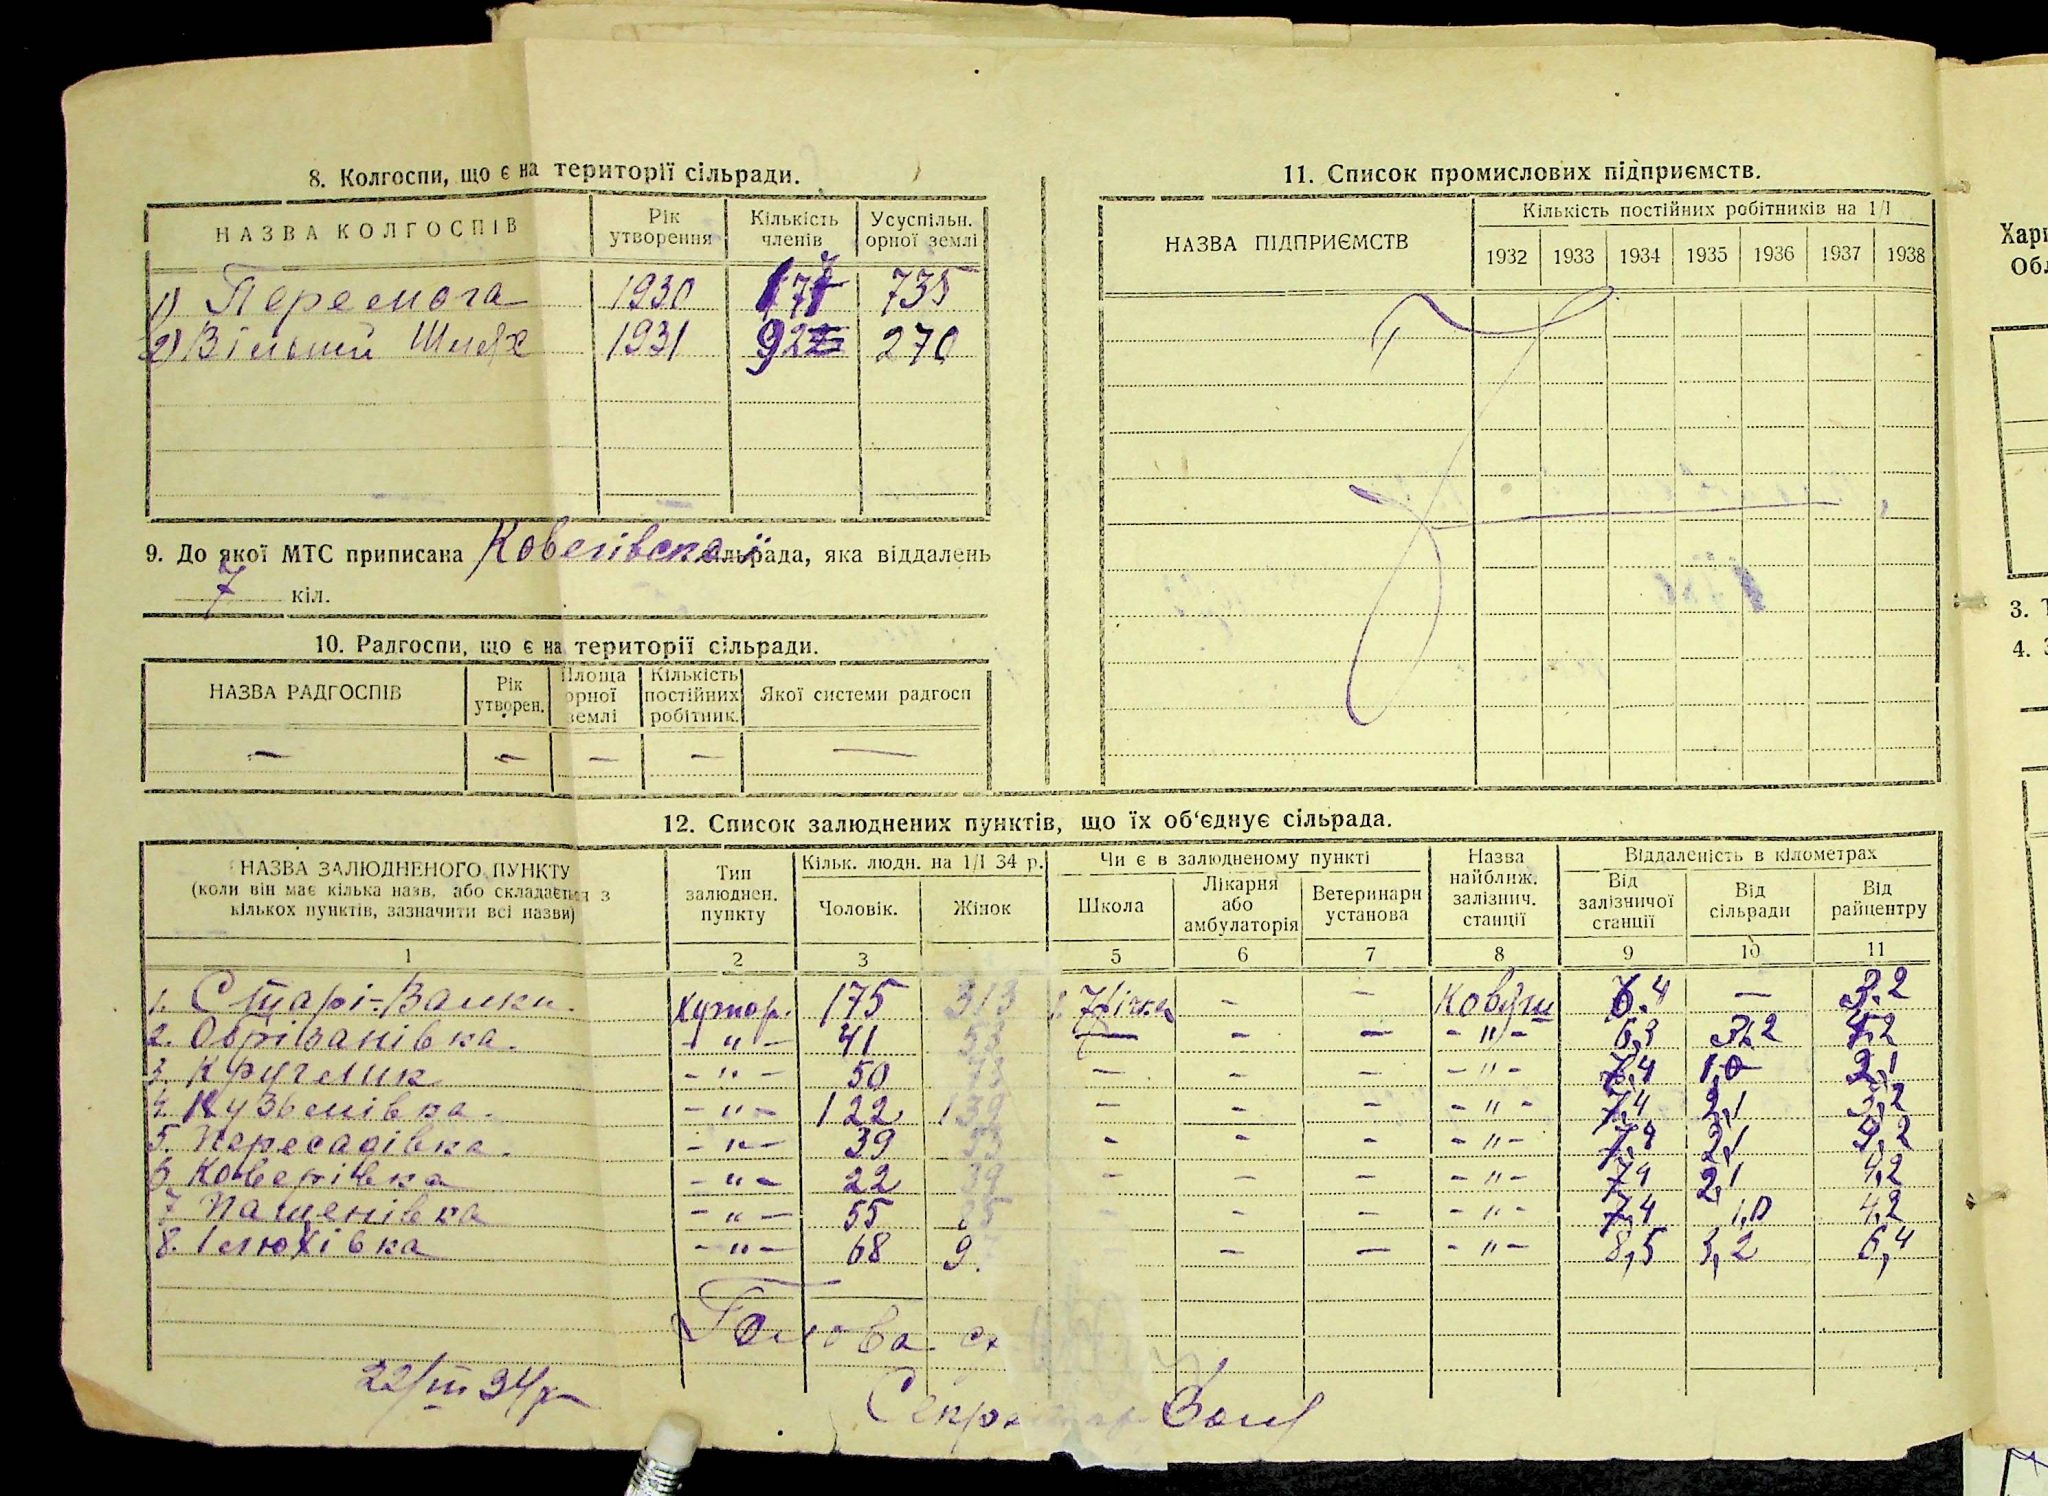 8. Колгоспи, що є на території сільради.
НАЗВА КОЛГОСПІВ | Рік утворення | Кількість членів | Усуспільн. орної землі
1) Перемога 1930 177 735
2) Вільний Шлях 1931 92 270
9. До якої МТС приписана Ковегівська сільрада, яка віддалень
7 кіл.
10. Радгоспи, що є на території сільради.
НАЗВА РАДГОСПІВ | Рік утворен. | Площа орної землі | Кількість постійних робітник. | Якої системи радгосп
— — — — —
11. Список промислових підприємств.
НАЗВА ПІДПРИЄМСТВ | Кількість постійних робітників на 1/I
1932 1933 1934 1935 1936 1937 1938
12. Список залюднених пунктів, що їх об'єднує сільрада.
НАЗВА ЗАЛЮДНЕНОГО ПУНКТУ (коли він має кілька назв, або складається з кількох пунктів, зазначити всі назви) | Тип залюднен. пункту | Кільк. людн. на 1/I 34 р. | Чи є в залюдненому пункті | Назва найближ. залізнич. станції | Віддаленість в кілометрах
Чоловік. | Жінок | Школа | Лікарня або амбулаторія | Ветеринарн установа | Від залізничої станції | Від сільради | Від райцентру
1 2 3 5 6 7 8 9 10 11
1. Старі-Валки. хутор. 175 313 — — Ков'яги 6.4 — 3.2
2. Обрізанівка. -"- 41 53 — — — -"- 6,3 3,2 4,2
3. Круглик -"- 50 — — — -"- 7,4 1,0 2,1
4. Кузьмівка. -"- 122 139 — — — -"- 7,4 2,1 3,2
5. Пересадівка. -"- 39 53 - - - -"- 7,4 2,1 3,2
6. Коверівка -"- 22 39 — — — -"- 7,4 2,1 4,2
7. Пащенівка -"- 55 85 - - - -"- 7,4 1,0 4,2
8. Ілюхівка -"- 68 9 — — -"- 8,5 3,2 6,4
Голова с
22/III 34 р
Секретар
Хар
Об
3. Т
4. З